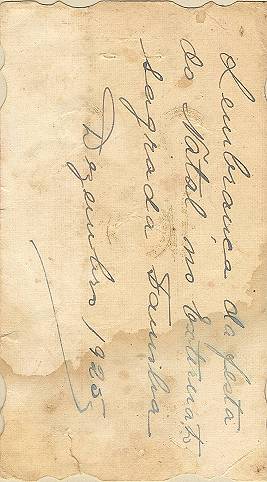 Lembrança da festa
do Natal no Externato
sagrada Familia
Dezembro 1925